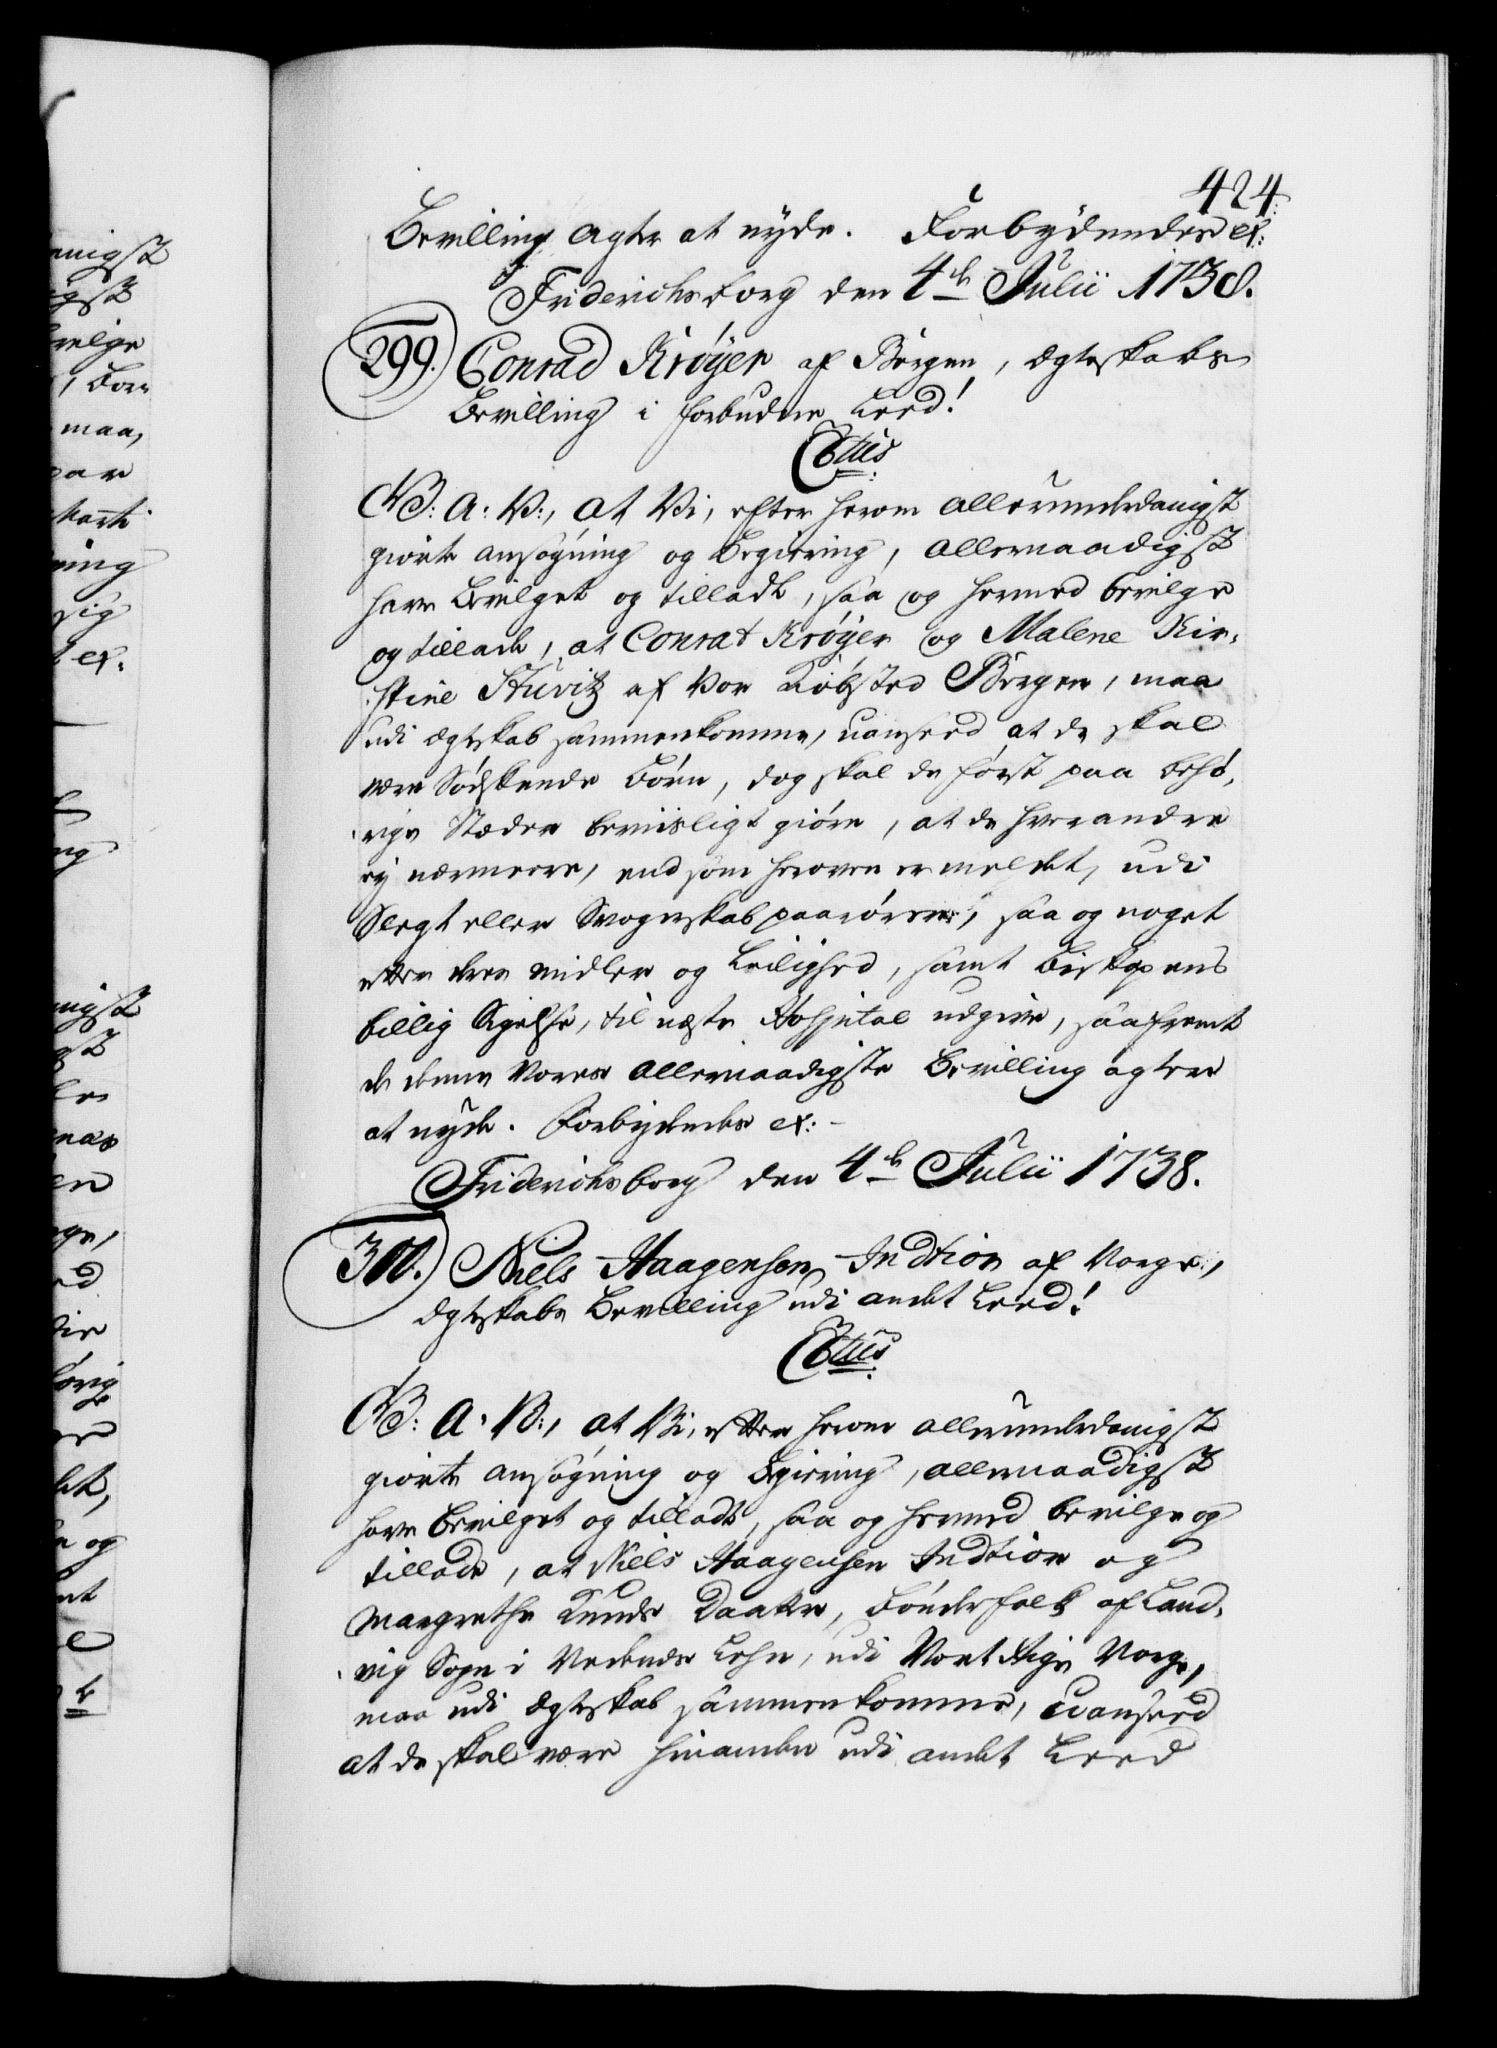 424.
Bevilling agter at nyde. Forbydendes etc:
Friderichsborg den 4de Julii 1738.
299. Conrad Krøyer af Bergen, Ægteskabs
Bevilling i forbudne Leed!
C6tus
G: A: V:, at Vi, efter herom allerunderdanigst
giorte ansøgning og Begiering, allernaadigst
have bevilget og tilladt, saa og hermed bevilge
og tillade, at Conrat Krøyer og Malene Kir-
stine Stüvitz af Vor Kiøbsted Bergen, maa
udi Ægteskab sammenkomme, uanseed at de skal
være Sødskende Børn, dog skal de først paa behø-
rige Stæder beviisligt giøre, at de hverandre
ej nærmere, end som heroven er meldet, udi
Slegt eller Svogerskab paarører, saa og noget
efter deres midler og Leilighed, samt Biskopens
billig Sigelse, til næste Hospital udgive, saafremt
de denne Vores allernaadigste Bevilling agter
at nyde. Forbydendes etc:
Friderichsborg den 4de Julii 1738.
300. Niels Haagensen Indtion af Norge,
Ægteskabs Bevilling udi andet Leed!
C6tus
G: A: V:, at Vi, efter herom allerunderdanigst
giorte ansøgning og Begiering, allernaadigst
have bevilget og tilladt, saa og hermed bevilge og
tillade, at Niels Haagensen Indtion og
Margrethe Knuds Daatter, Bønderfolk af Land-
vig Sogn i Nedenes Lehn, udi Vort Rige Norge,
maa udi Ægteskab sammenkomme, uanseed
at de skal være hinanden udi andet Leed